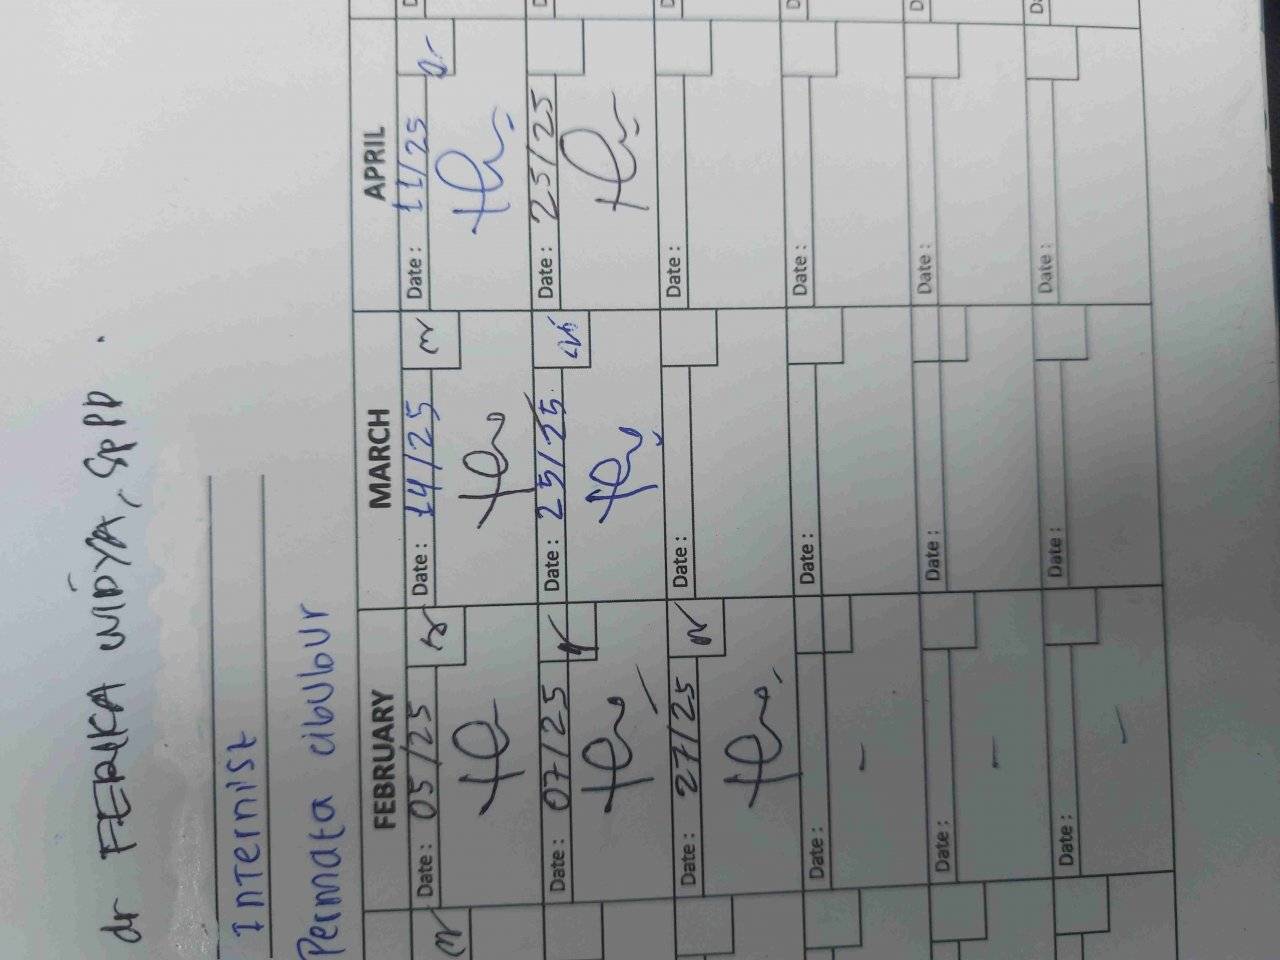 dr FERIKA WIDYA, SpPD.
Internist
Permata cibubur
FEBRUARY MARCH APRIL
Date : 05/25 Date : 14/25 Date : 11/25
Date : 07/25 Date : 25/25 Date : 25/25
Date : 27/25 Date : Date :
Date : Date : Date :
Date : Date : Date :
Date : Date : Date :